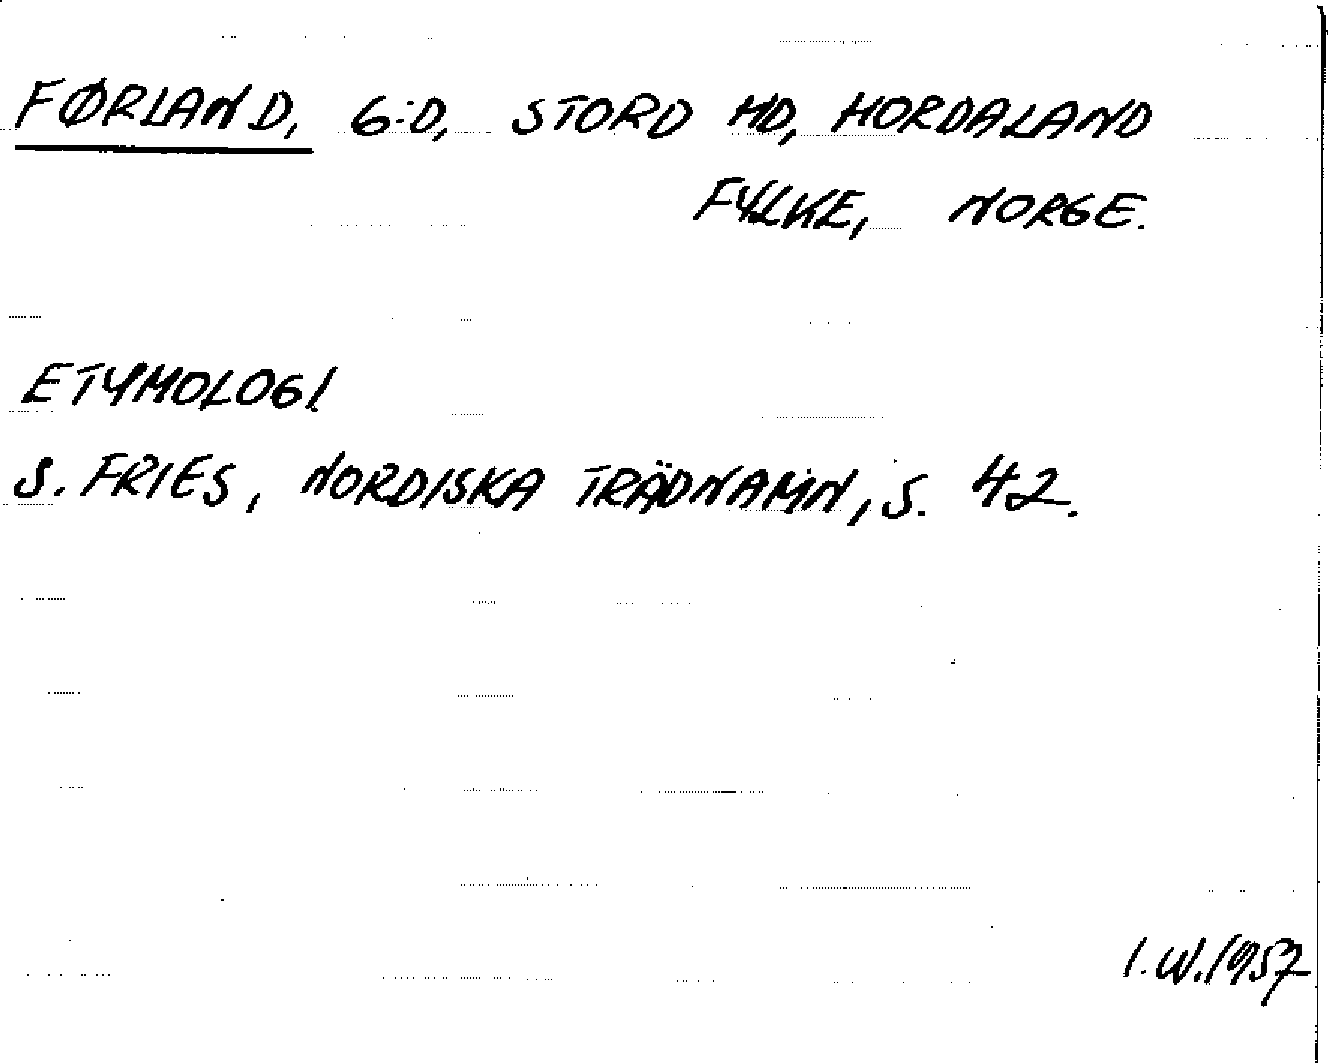 FØRLAND, G:D, STORD HD, HORDALAND
FYLKE, NORGE.
ETYMOLOGI
S. FRIES, NORDISKA TRÄDNAMN, S. 42.
I.W./1957